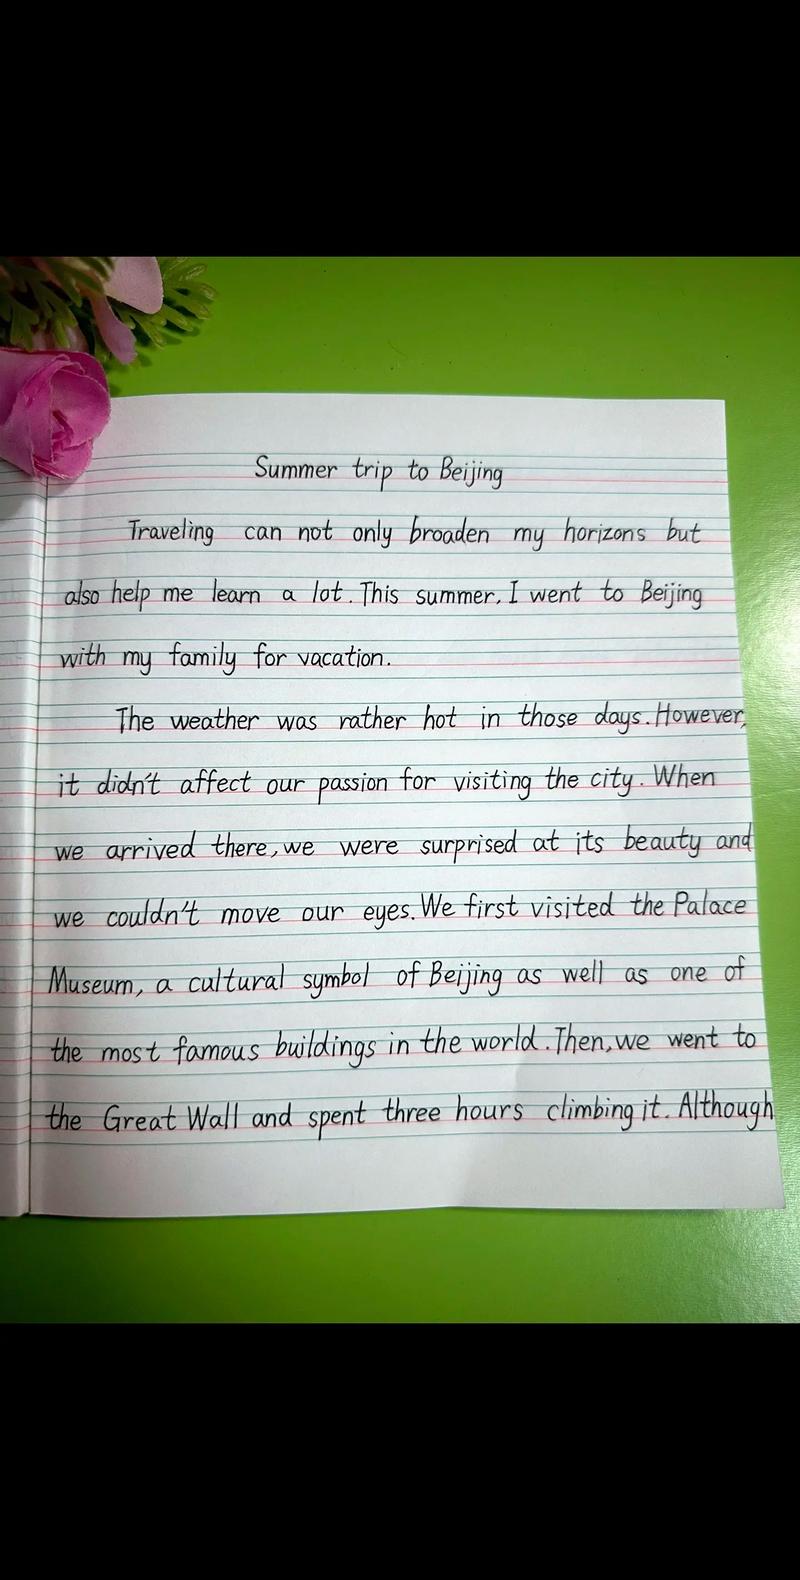 Summer trip to Beijing
Traveling can not only broaden my horizons but
also help me learn a lot. This summer, I went to Beijing
with my family for vacation.
The weather was rather hot in those days. However,
it didn't affect our passion for visiting the city. When
we arrived there, we were surprised at its beauty and
we couldn't move our eyes. We first visited the Palace
Museum, a cultural symbol of Beijing as well as one of
the most famous buildings in the world. Then, we went to
the Great Wall and spent three hours climbing it. Although